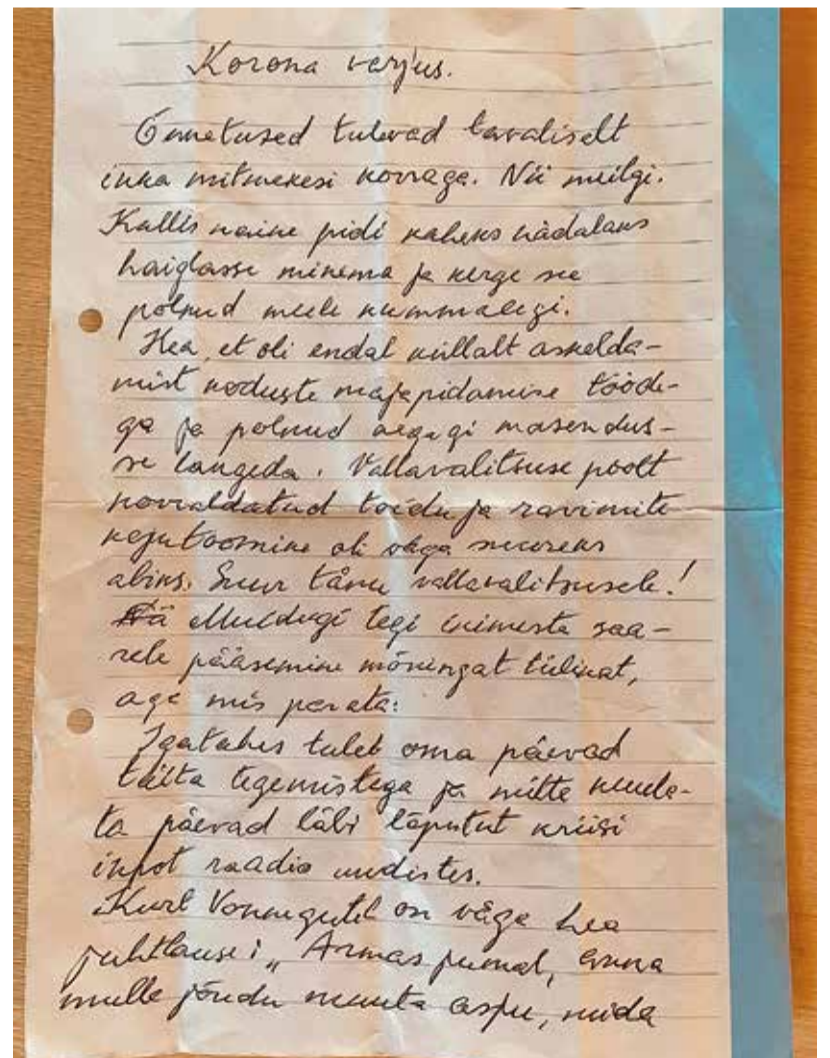 Korona varjus.
Õnnetused tulevad tavaliselt
ikka mitmekesi korraga. Nii meilgi.
Kallis naine pidi kaheks nädalaks
haiglasse minema ja kerge see
polnud meele kummalegi.
Hea, et oli endal küllalt askelda-
mist koduste majapidamise tööde-
ga ja polnud aegagi masendus-
se langeda. Vallavalitsuse poolt
korraldatud toidu ja ravimite
kojutoomine oli väga suureks
abiks. Suur tänu vallavalitsusele!
Muidugi tegi inimeste saa-
rele pääsemine mõningat tülinat,
aga mis parata.
Igatahes tuleb oma päevad
täita tegemistega ja mitte kuula-
ta päevad läbi lõputut kriisi
infot raadio uudistes.
Kurt Vonnegutil on väga hea
juhtlause: „Armas jumal, anna
mulle jõudu muuta asju, mida